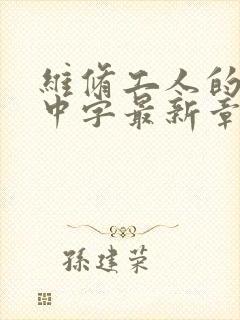 維脩工人的
中字最新章
孫建荣